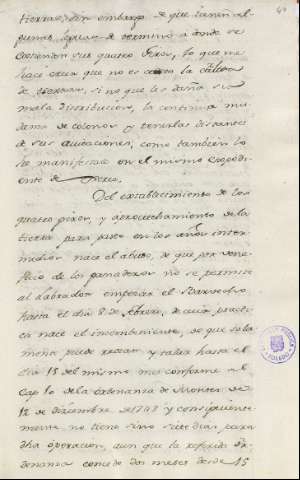 tierras, sin embargo de que tienen al-
gunas leguas de termino a donde se
estienden sus quatro giros, lo que me
hace creer que no es la
de tierras, si no que les daña su
mala distribucion, la continua mu-
danza de colonos y tenerlas distantes
de sus avitaciones, como tambien lo
manifiesta en el mismo Expedi-
ente de
Del establecimiento de los
quatro giros, y aprovechamiento de la
tierra para pasto en los años inter-
medios nace el abuso, de que por bene-
ficio de los ganaderos no se permite
al labrador empezar el Barvecho
hasta el dia 8 de Febrero, de cuia practi-
ca nace el inconbeniente, de que sola
mente puede rozar y talar hasta el
dia 15 del mismo mes conforme al
Cap. 10 de la ordenanza de Montes de
12 de diciembre de 1748 y consiguiente
mente no tiene sino siete dias, para
dha operacion, aun que la referida Or-
denanza concede dos meses desde 15